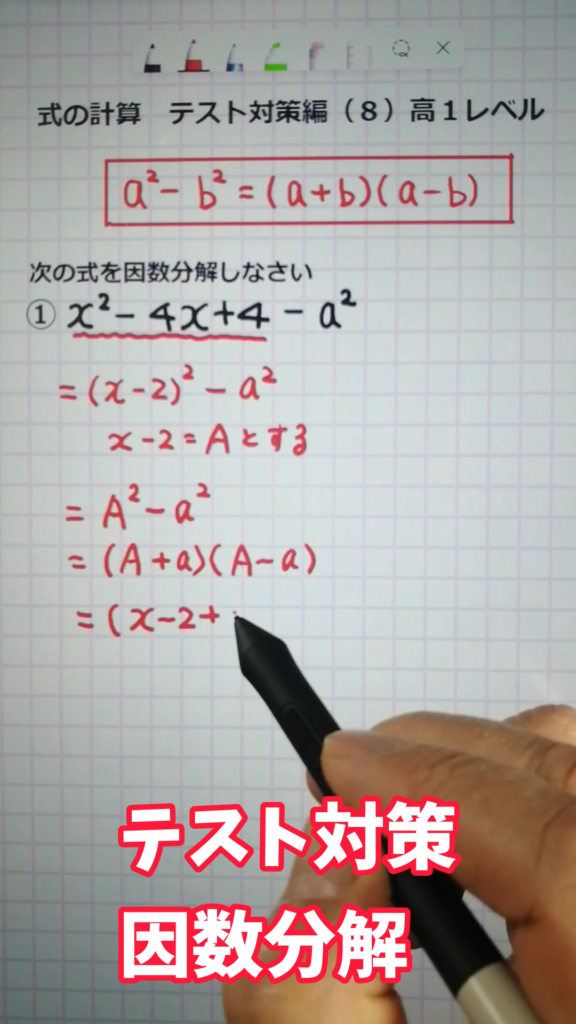 式の計算 テスト対策編（８）高１レベル
a² − b² = (a+b)(a−b)
次の式を因数分解しなさい
① x² − 4x+4 − a²
= (x−2)² − a²
x−2 = A とする
= A² − a²
= (A+a)(A−a)
= (x−2+
テスト対策
因数分解